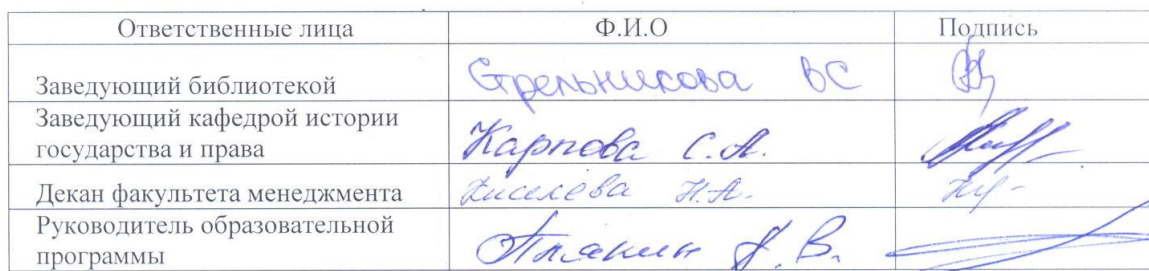 Ответственные лица Ф.И.О Подпись
Заведующий библиотекой Стрельникова ВС
Заведующий кафедрой истории
государства и права Карпова С.А.
Декан факультета менеджмента Киселева Н.А.
Руководитель образовательной
программы В.